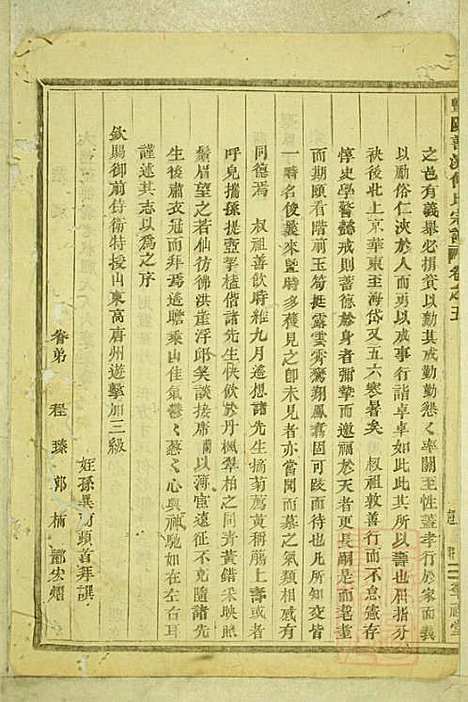 之也有義舉必捐貲以成其成勤勤懇く率關王性蓋孝行於家而義
以勵俗仁浹於人而以戒事行詣卓卓如此此其所以壽也相指分
袂後壯上京華東至海岱又五六寒暑矣 叔祖敦善行而不怠憲存
惇史學警懿戒則善德於身者彌摯而邀福於天者更長嗣是而耄耋
而期頤看階前玉筍挺露雲霄驚翔鳳翥固可跂而待也凡参
一時名俊叢來暨時多獲見之卽未見者亦當聞而慕之氣類相感有
同德焉 叔祖善飲時維九月遙想諸先生摘菊薦黃稱觴上壽
呼兒攜孫提壺挈榼偕諸先生快飲於丹楓翠柏之間青黃錯采映照
鬚眉望之者仙彷彿洪崖浮邱笑談接席 以薄宦遠征不克隨諸先
生後肅衣冠而拜焉遙瞻乘山佳氣鬱く葱く心與神馳如在左右耳
謹述其志以爲之序
欽賜御前侍衛特授山東高唐州遊擊加三級
姪孫 頓首拜譔
眷弟 程瑧 郭楠 酈宏熠
氏宗譜 卷之五
堂